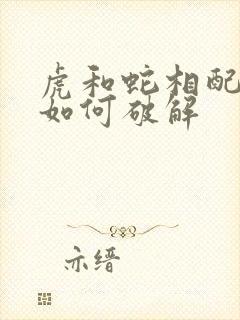 虎和蛇相配
如何破解
亦缙